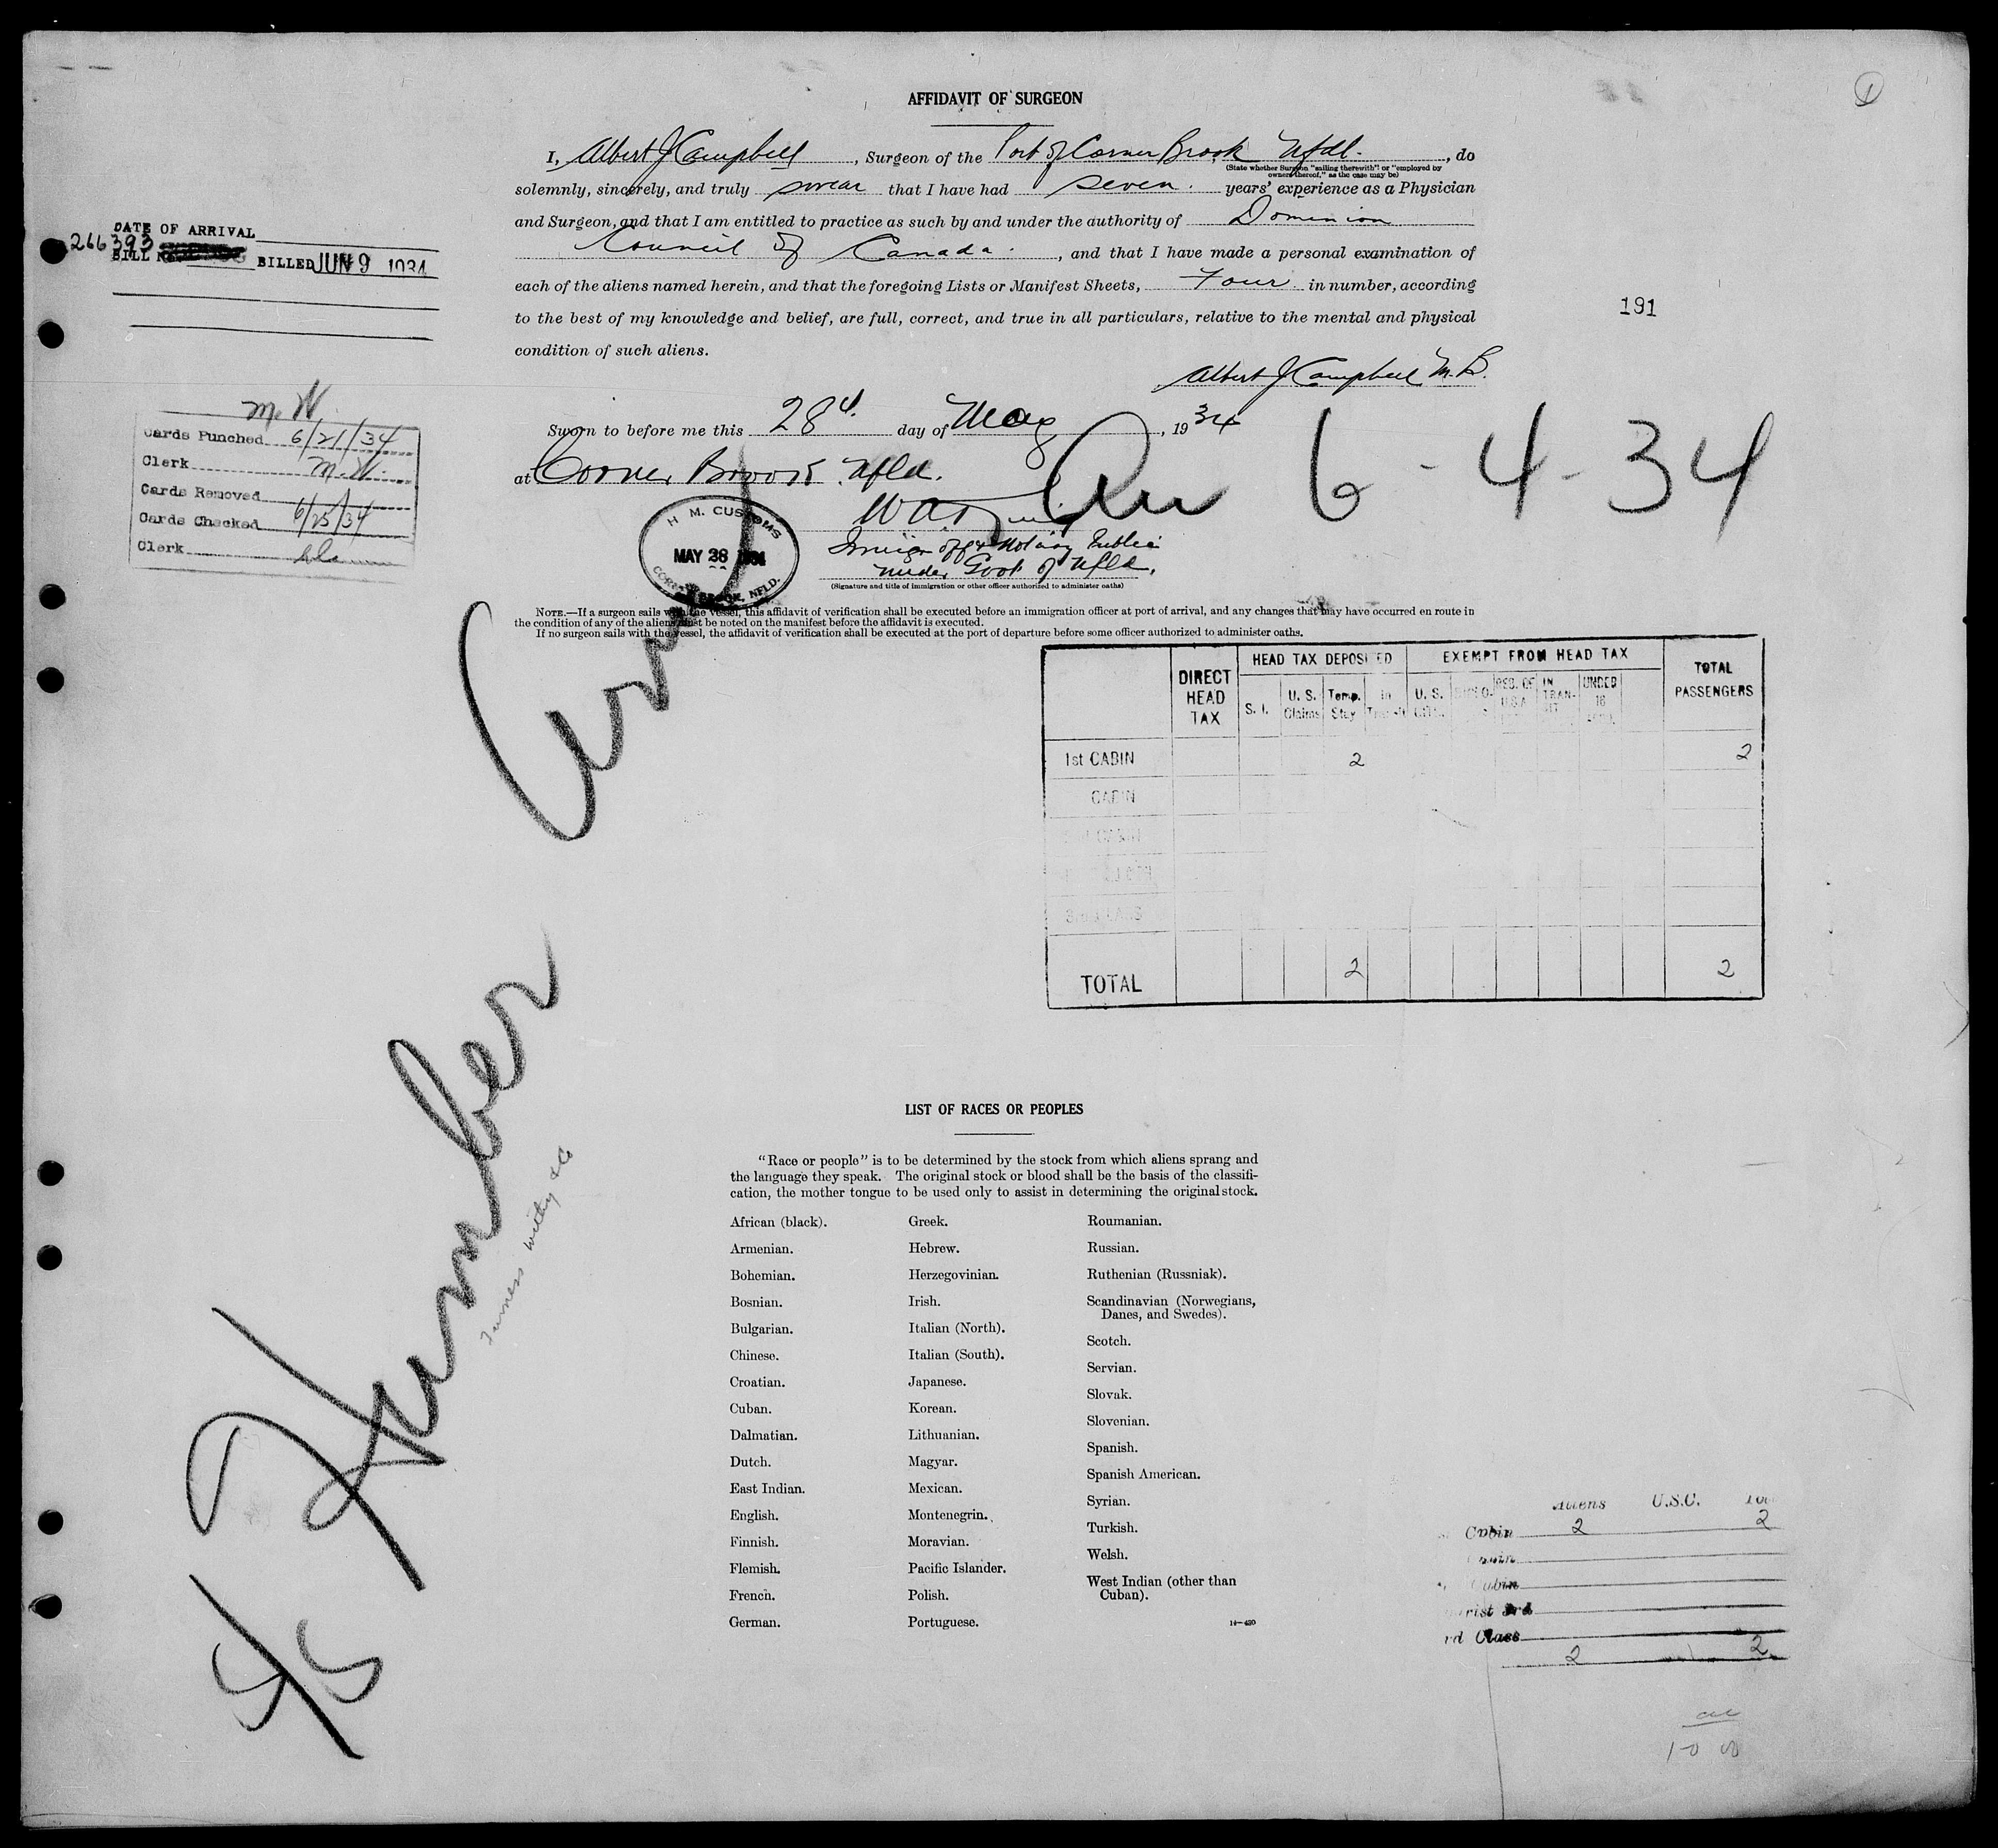 1
AFFIDAVIT OF SURGEON
I, Albert J Campbell, Surgeon of the Port of Corner Brook Nfdl., do
(State whether Surgeon "sailing therewith" or "employed by
owners thereof," as the case may be)
solemnly, sincerely, and truly swear that I have had seven. years' experience as a Physician
and Surgeon, and that I am entitled to practice as such by and under the authority of Dominion
Council of Canada., and that I have made a personal examination of
each of the aliens named herein, and that the foregoing Lists or Manifest Sheets, Four in number, according
to the best of my knowledge and belief, are full, correct, and true in all particulars, relative to the mental and physical
condition of such aliens.
DATE OF ARRIVAL
266393
BILL BILLED JUN 9 1934
191
Albert J Campbell M.D.
Sworn to before me this 28th day of May, 1934
at Corner Brook Nfld.
Arr 6-4-34
M. W.
Cards Punched 6/21/34
Clerk M.W.
Cards Removed
Cards Checked 6/25/34
Clerk
H. M. CUSTOMS
MAY 28 1934
CORNER BROOK, NFLD.
Immign Offr & Notary Public
under Govt of Nfld.
(Signature and title of immigration or other officer authorized to administer oaths)
NOTE.—If a surgeon sails with the vessel, this affidavit of verification shall be executed before an immigration officer at port of arrival, and any changes that may have occurred en route in
the condition of any of the aliens must be noted on the manifest before the affidavit is executed.
If no surgeon sails with the vessel, the affidavit of verification shall be executed at the port of departure before some officer authorized to administer oaths.
DIRECT HEAD TAX
HEAD TAX DEPOSITED
EXEMPT FROM HEAD TAX
TOTAL PASSENGERS
S. I. U. S. Claims Temp. Stay In Transit U. S. Citz. RSD. OF U.S.A IN TRANSIT UNDER 16
1st CABIN 2 2
CABIN
TOTAL 2 2
S/S Humber Arm
Furness Withy & Co
LIST OF RACES OR PEOPLES
"Race or people" is to be determined by the stock from which aliens sprang and
the language they speak. The original stock or blood shall be the basis of the classifi-
cation, the mother tongue to be used only to assist in determining the original stock.
African (black).
Armenian.
Bohemian.
Bosnian.
Bulgarian.
Chinese.
Croatian.
Cuban.
Dalmatian.
Dutch.
East Indian.
English.
Finnish.
Flemish.
French.
German.
Greek.
Hebrew.
Herzegovinian.
Irish.
Italian (North).
Italian (South).
Japanese.
Korean.
Lithuanian.
Magyar.
Mexican.
Montenegrin.
Moravian.
Pacific Islander.
Polish.
Portuguese.
Roumanian.
Russian.
Ruthenian (Russniak).
Scandinavian (Norwegians,
Danes, and Swedes).
Scotch.
Servian.
Slovak.
Slovenian.
Spanish.
Spanish American.
Syrian.
Turkish.
Welsh.
West Indian (other than
Cuban).
14—430
Aliens U.S.C.
Cabin 2 2
Cabin
rist 3rd
rd Class
2 2